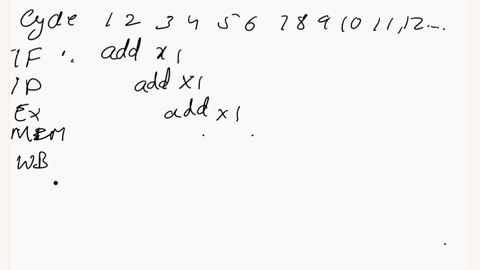 Cycle 1 2 3 4 5 6 7 8 9 10 11, 12 ...
IF : add x1
ID add x1
EX add x1
MEM
WB